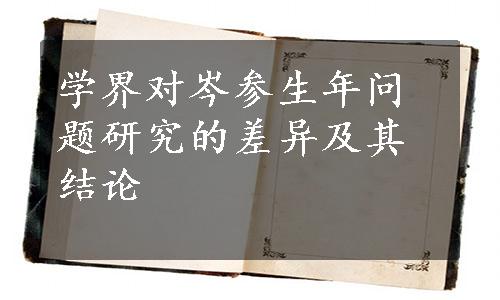 学界对岑参生年问
题研究的差异及其
结论